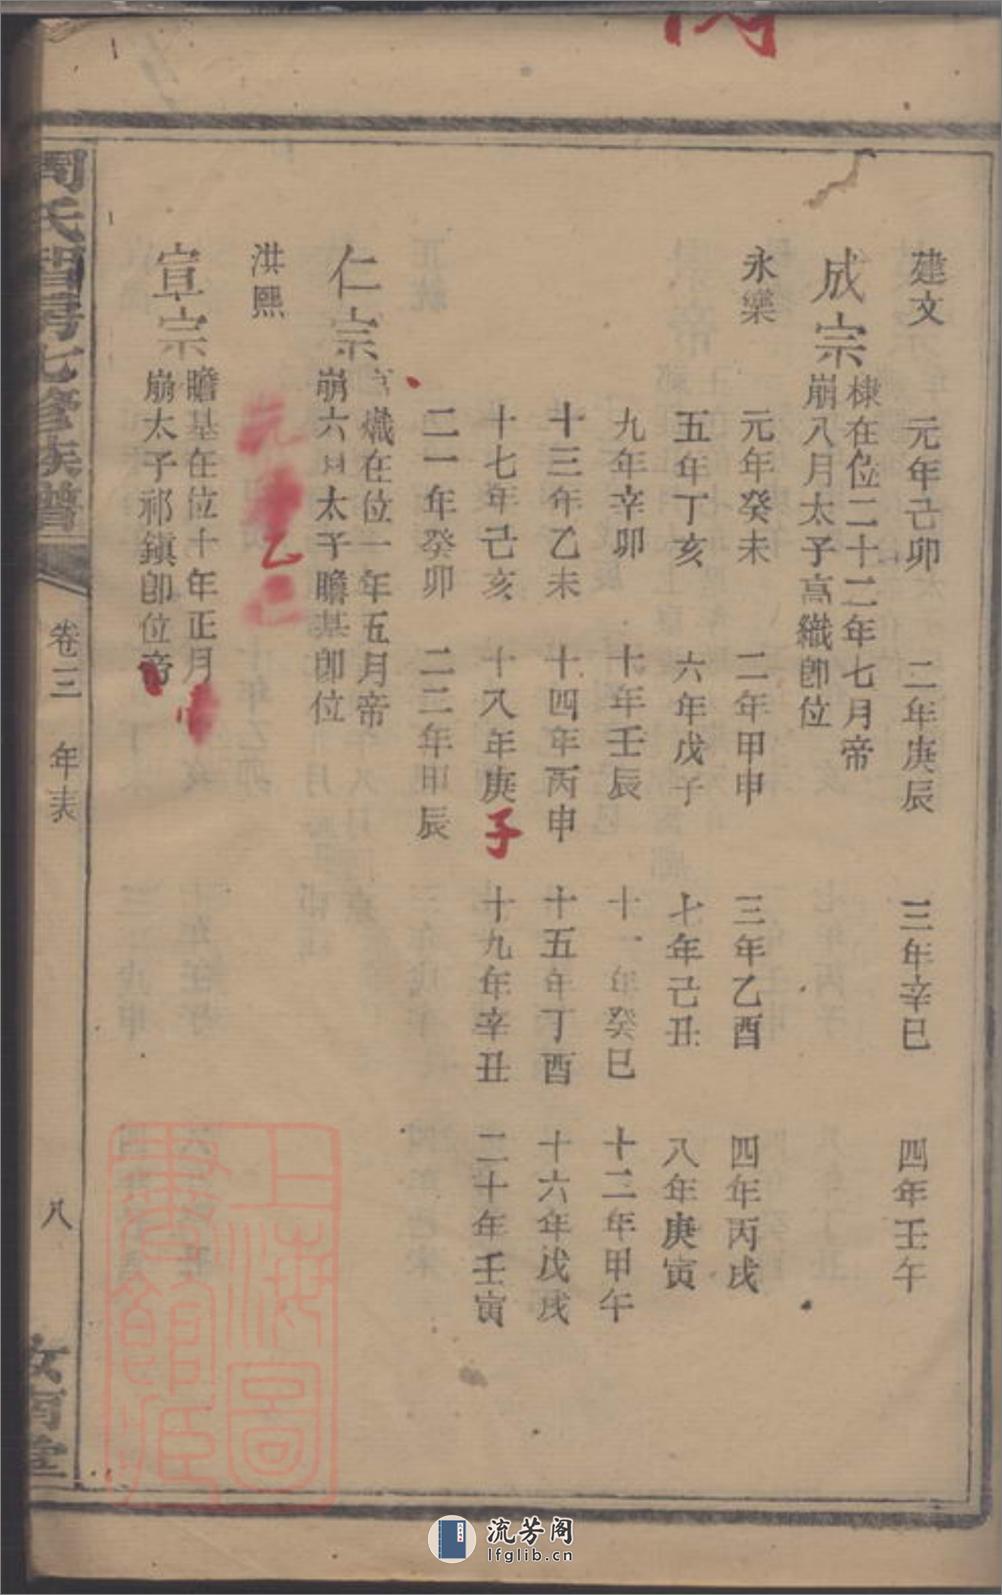 建文
元年己卯 二年庚辰 三年辛巳 四年壬午
成宗
棣在位二十二年七月帝
崩八月太子高織卽位
永樂
元年癸未 二年甲申 三年乙酉 四年丙戌
五年丁亥 六年戊子 七年己丑 八年庚寅
九年辛卯 十年壬辰 十一年癸巳 十二年甲午
十三年乙未 十四年丙申 十五年丁酉 十六年戊戌
十七年己亥 十八年庚子 十九年辛丑 二十年壬寅
二一年癸卯 二二年甲辰
仁宗
熾在位一年五月帝
崩六月太子瞻基卽位
洪熙
元年乙巳
宣宗
瞻基在位十年正月帝
崩太子祁鎭卽位帝
周氏智房七修族譜
卷三 年表
八
汝南堂
上海圖書館藏
流芳阁
lfglib.cn